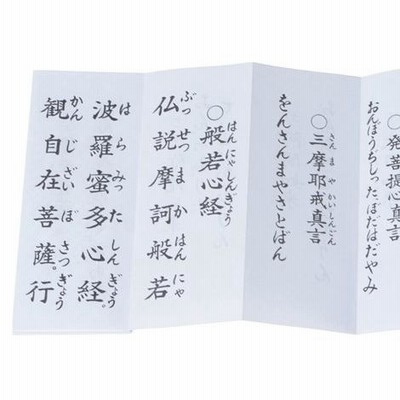 ○発菩提心真言
おんぼうぢしった、ぼだはだやみ
さんまやかいしんごん
○三摩耶戒真言
をんさんまやさとばん
はんにゃしんぎょう
○般若心経
ぶっせつまかはんにゃ
仏説摩訶般若
はらみったしんぎょう
波羅蜜多心経。
かんじざいぼさつぎょう
観自在菩薩。行